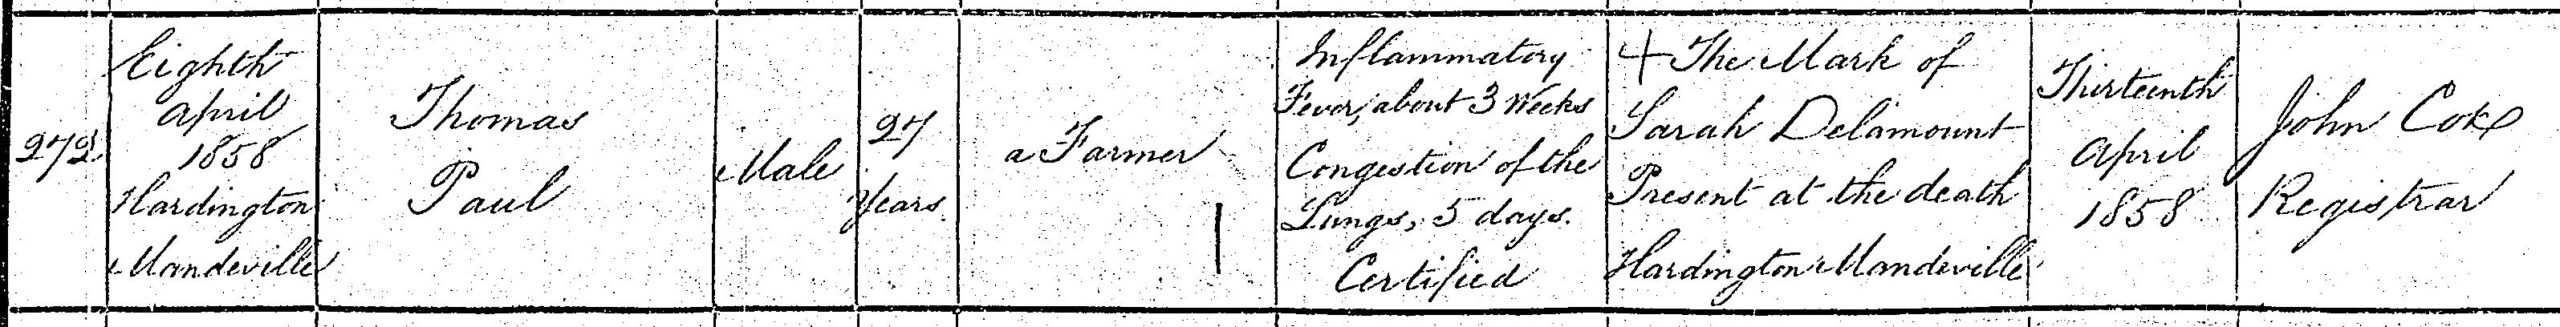 272
Eighth
April
1858
Hardington
Mandeville
Thomas
Paul
Male
27
Years
a Farmer
Inflammatory
Fever, about 3 Weeks
Congestion of the
Lungs, 5 days.
Certified
+ The Mark of
Sarah Delamount
Present at the death
Hardington Mandeville
Thirteenth
April
1858
John Cox
Registrar